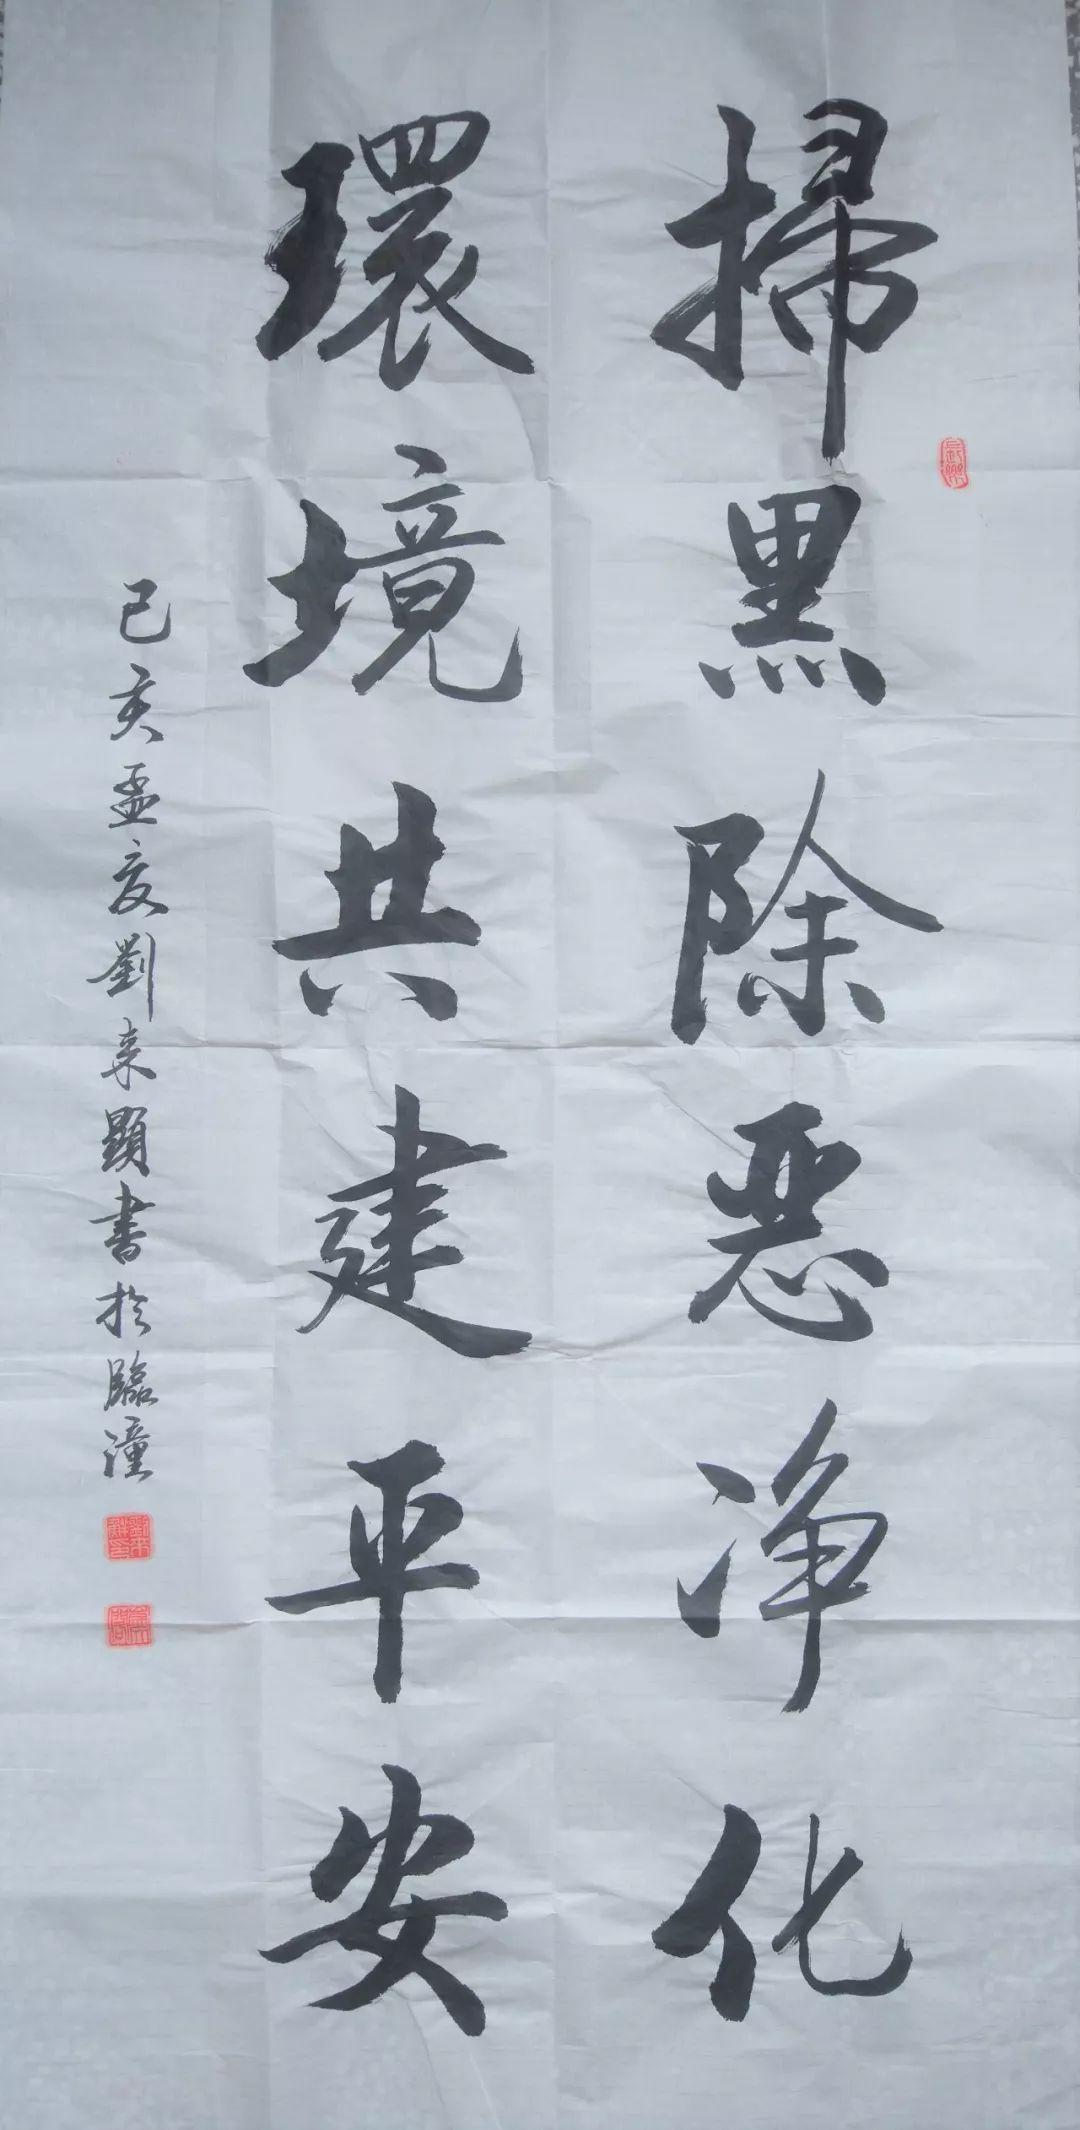 掃黑除恶净化
環境共建平安
己亥孟夏劉来顕書於臨潼